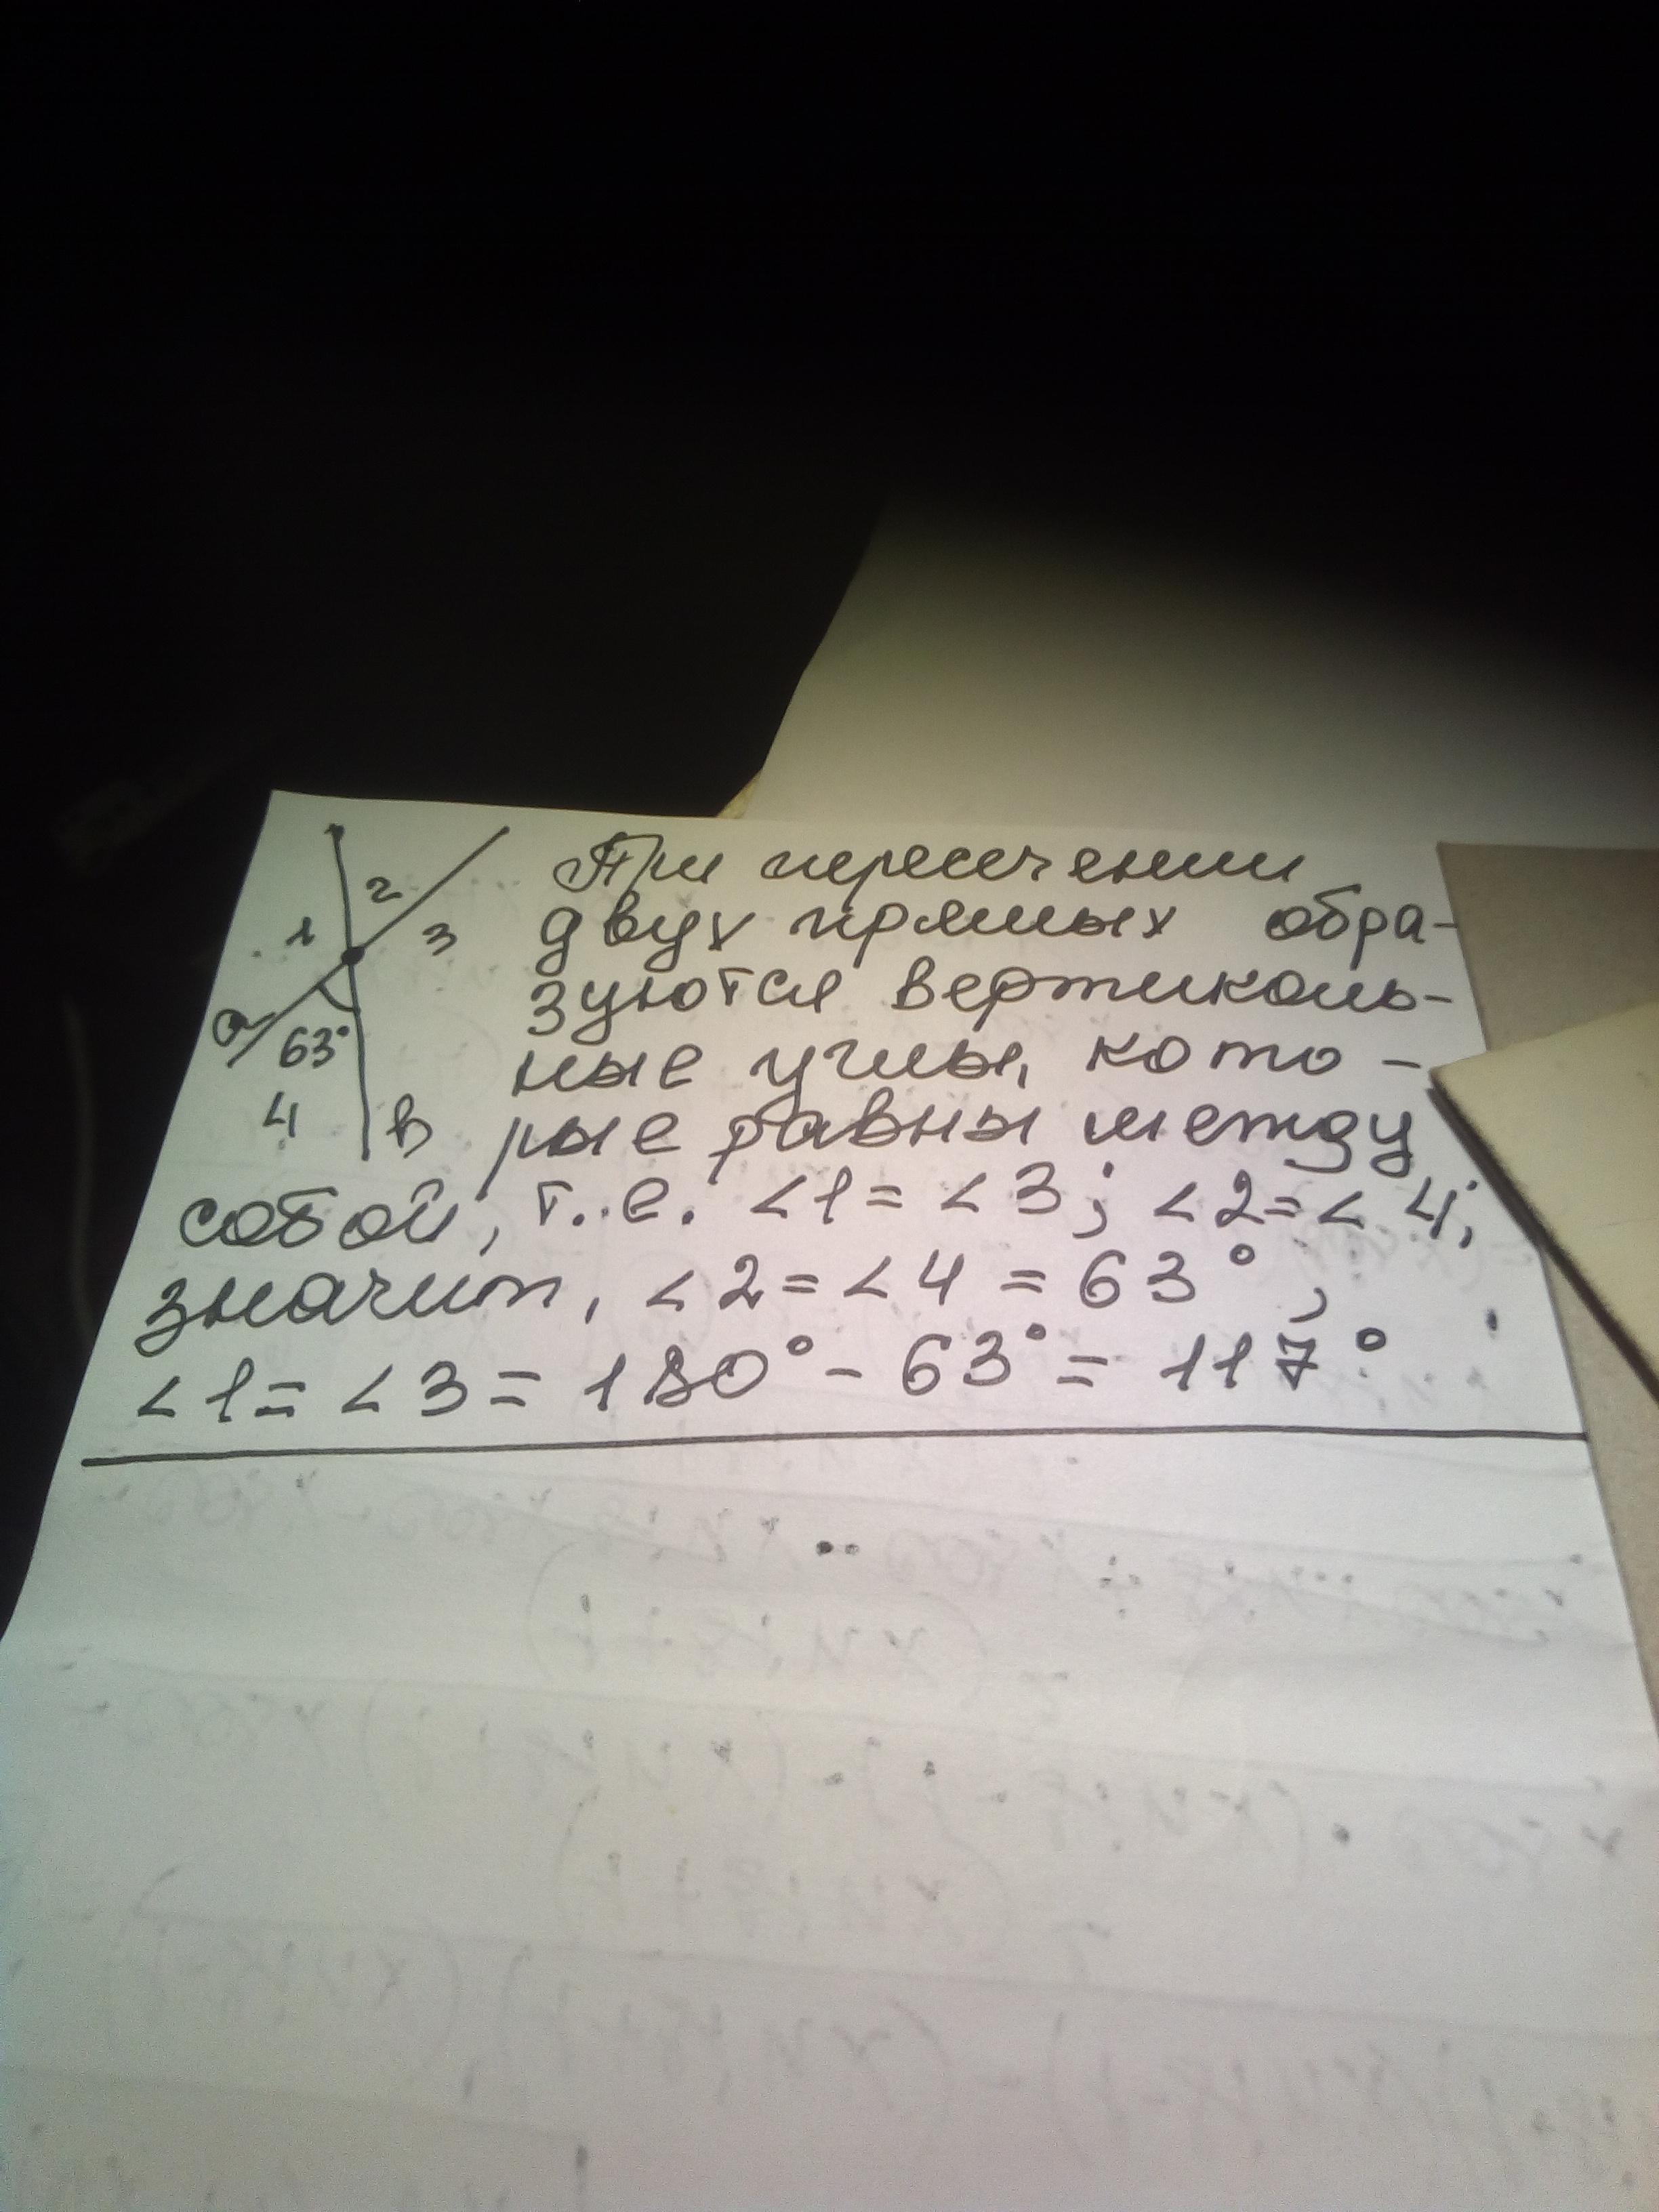 1 2 3
а 63°
4 в
При пересечении
двух прямых обра-
зуются вертикаль-
ные углы, кото-
рые равны между
собой, т.е. <1 = <3; <2 = <4,
значит, <2 = <4 = 63°,
<1 = <3 = 180° - 63° = 117°